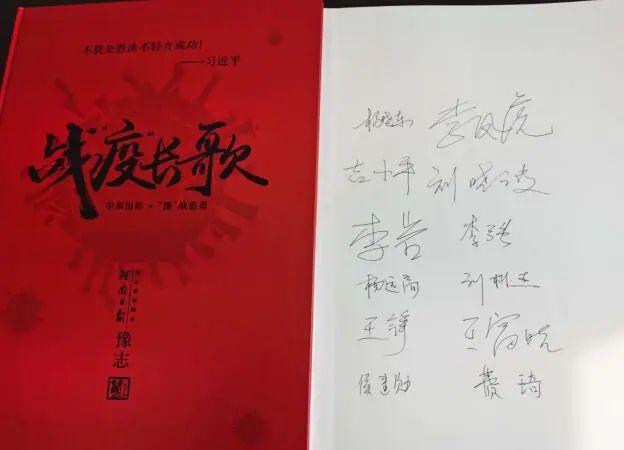 不获全胜决不轻言成功！
——习近平
战“疫”长歌
中原出彩·“豫”战愈勇
河南日报
豫志
杨晓东 李凤虎
吉小平 刘晓波
李岩 李强
杨远高 刘树杰
王铮 王富晓
侯建勋 龚琦